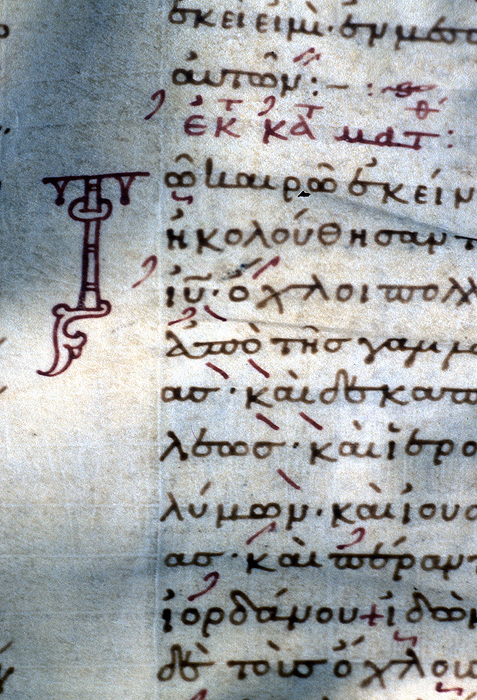 ἐκεῖ εἰμὶ· ἐν μέσω
αὐτῶν:–
ἐκ τ κατ ματ:
Τῶ καιρῶ ἐκείν
ἠκολούθησαν τ
ἰῦ· ὄχλοι πολλ
ἀπὸ τῆσ γαλιλα
ασ· καὶ δεκαπο
λεωσ· καὶ ἱερο
λύμων· καὶ ἰουδ
ασ· καὶ πέραν τ
ἰορδάνου + ἰδὼν
δὲ τοὺσ ὄχλου